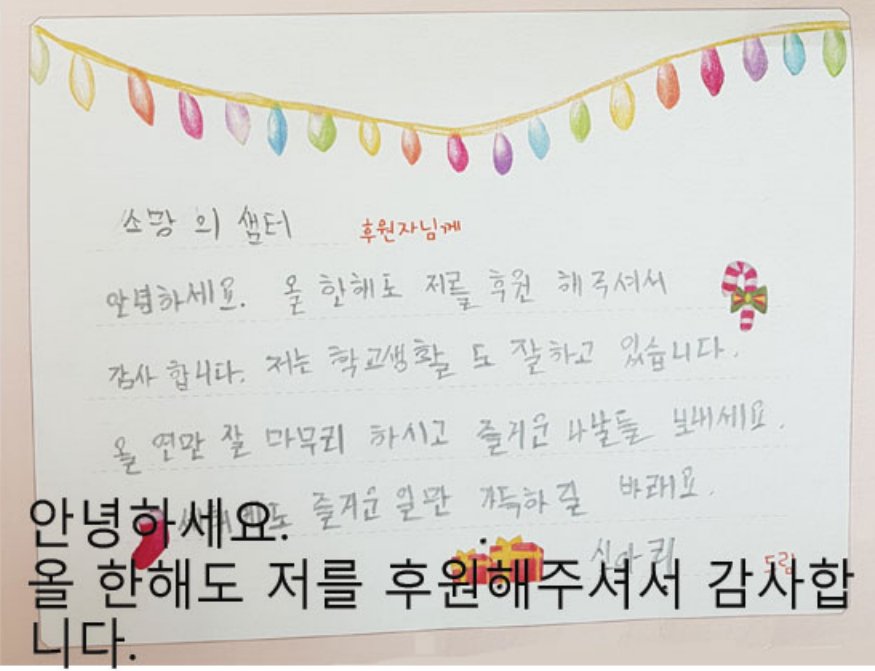 소망의 샘터 후원자님께
안녕하세요. 올 한해도 저를 후원 해주셔서
감사 합니다. 저는 학교생활 도 잘하고 있습니다.
올 연말 잘 마무리 하시고 즐거운 나날들 보내세요.
도 즐거운 일만 가득하길 바래요.
신아리 드림
안녕하세요.
올 한해도 저를 후원해주셔서 감사합
니다.